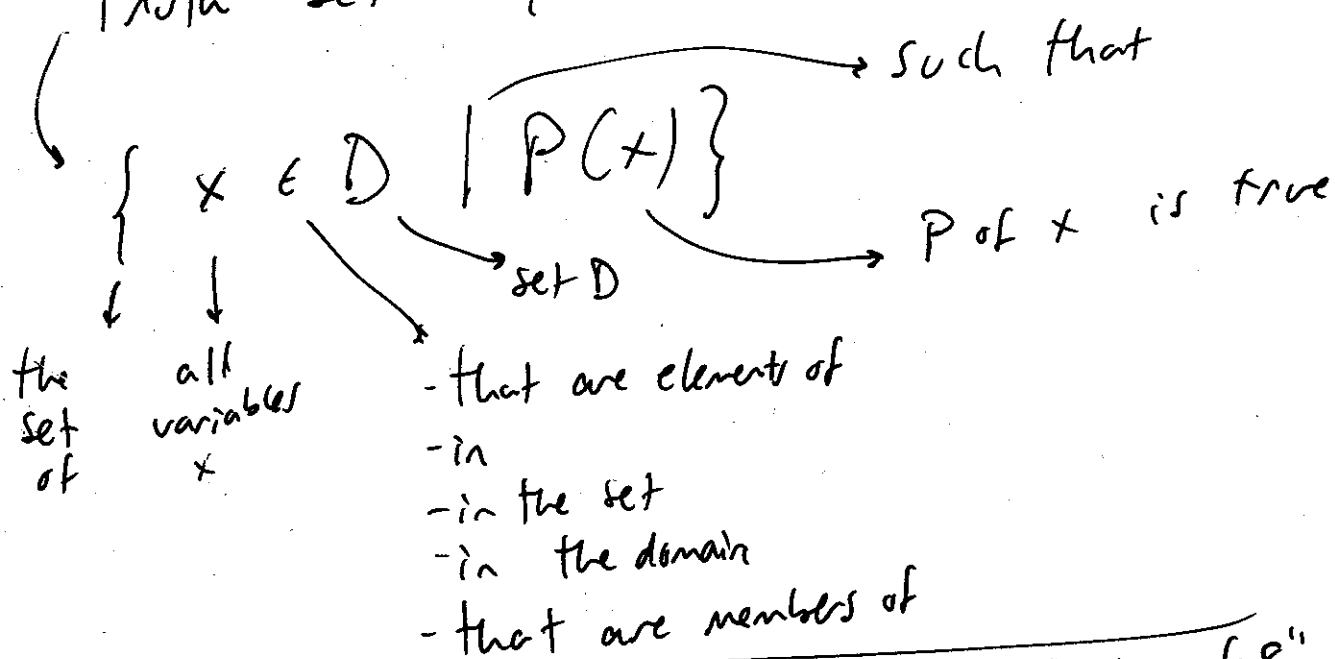 Truth set
such that
{ x ∈ D | P(x) }
P of x is true
set D
the set of
all variables x
- that are elements of
- in
- in the set
- in the domain
- that are members of